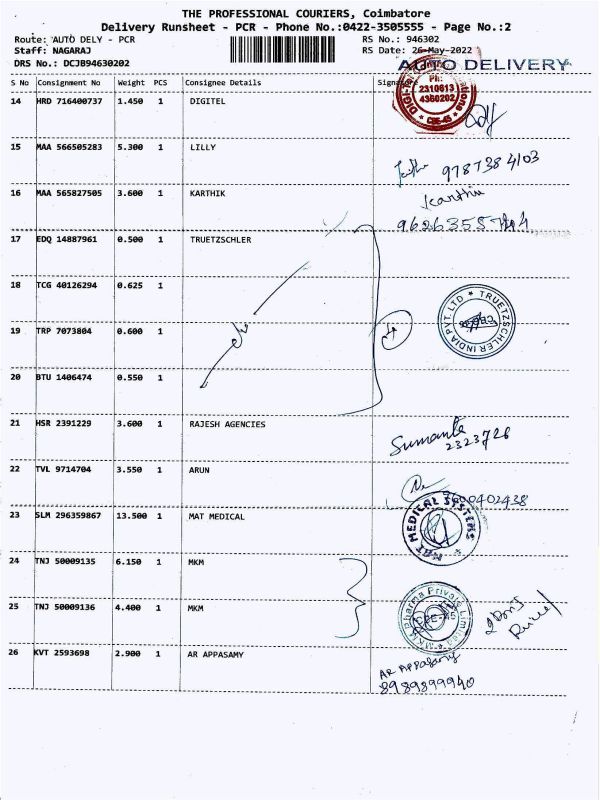 THE PROFESSIONAL COURIERS, Coimbatore
Delivery Runsheet - PCR - Phone No.:0422-3505555 - Page No.:2
Route: AUTO DELY - PCR RS No.: 946302
Staff: NAGARAJ RS Date: 26-May-2022
DRS No.: DCJB94630202 AUTO DELIVERY
S No Consignment No Weight PCS Consignee Details Signature
14 HRD 716400737 1.450 1 DIGITEL
Ph:
2310613
4360202
* CBE-45 *
15 MAA 566505283 5.300 1 LILLY
9787384103
16 MAA 565827505 3.600 1 KARTHIK
Karthik
17 EDQ 14887961 0.500 1 TRUETZSCHLER
18 TCG 40126294 0.625 1
TRUETZSCHLER INDIA PVT. LTD
19 TRP 7073804 0.600 1
4
20 BTU 1406474 0.550 1
21 HSR 2391229 3.600 1 RAJESH AGENCIES
2323726
22 TVL 9714704 3.550 1 ARUN
9600402438
23 SLM 296359867 13.500 1 MAT MEDICAL
MAT MEDICAL SYSTEMS
24 TNJ 50009135 6.150 1 MKM
25 TNJ 50009136 4.400 1 MKM
MKM Pharma Private Limited
26 KVT 2593698 2.900 1 AR APPASAMY
AR Appasamy
8989899940